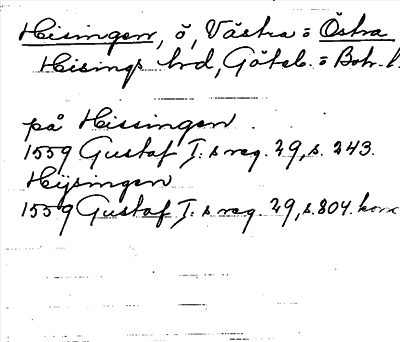 Hisingen, ö, Västra = Östra
Hisings hrd, Göteb. = Boh. l.
på Hissingen
1559 Gustaf I:s reg. 29, s. 243.
Hijsingen
1559 Gustaf I:s reg. 29, s. 804. konc